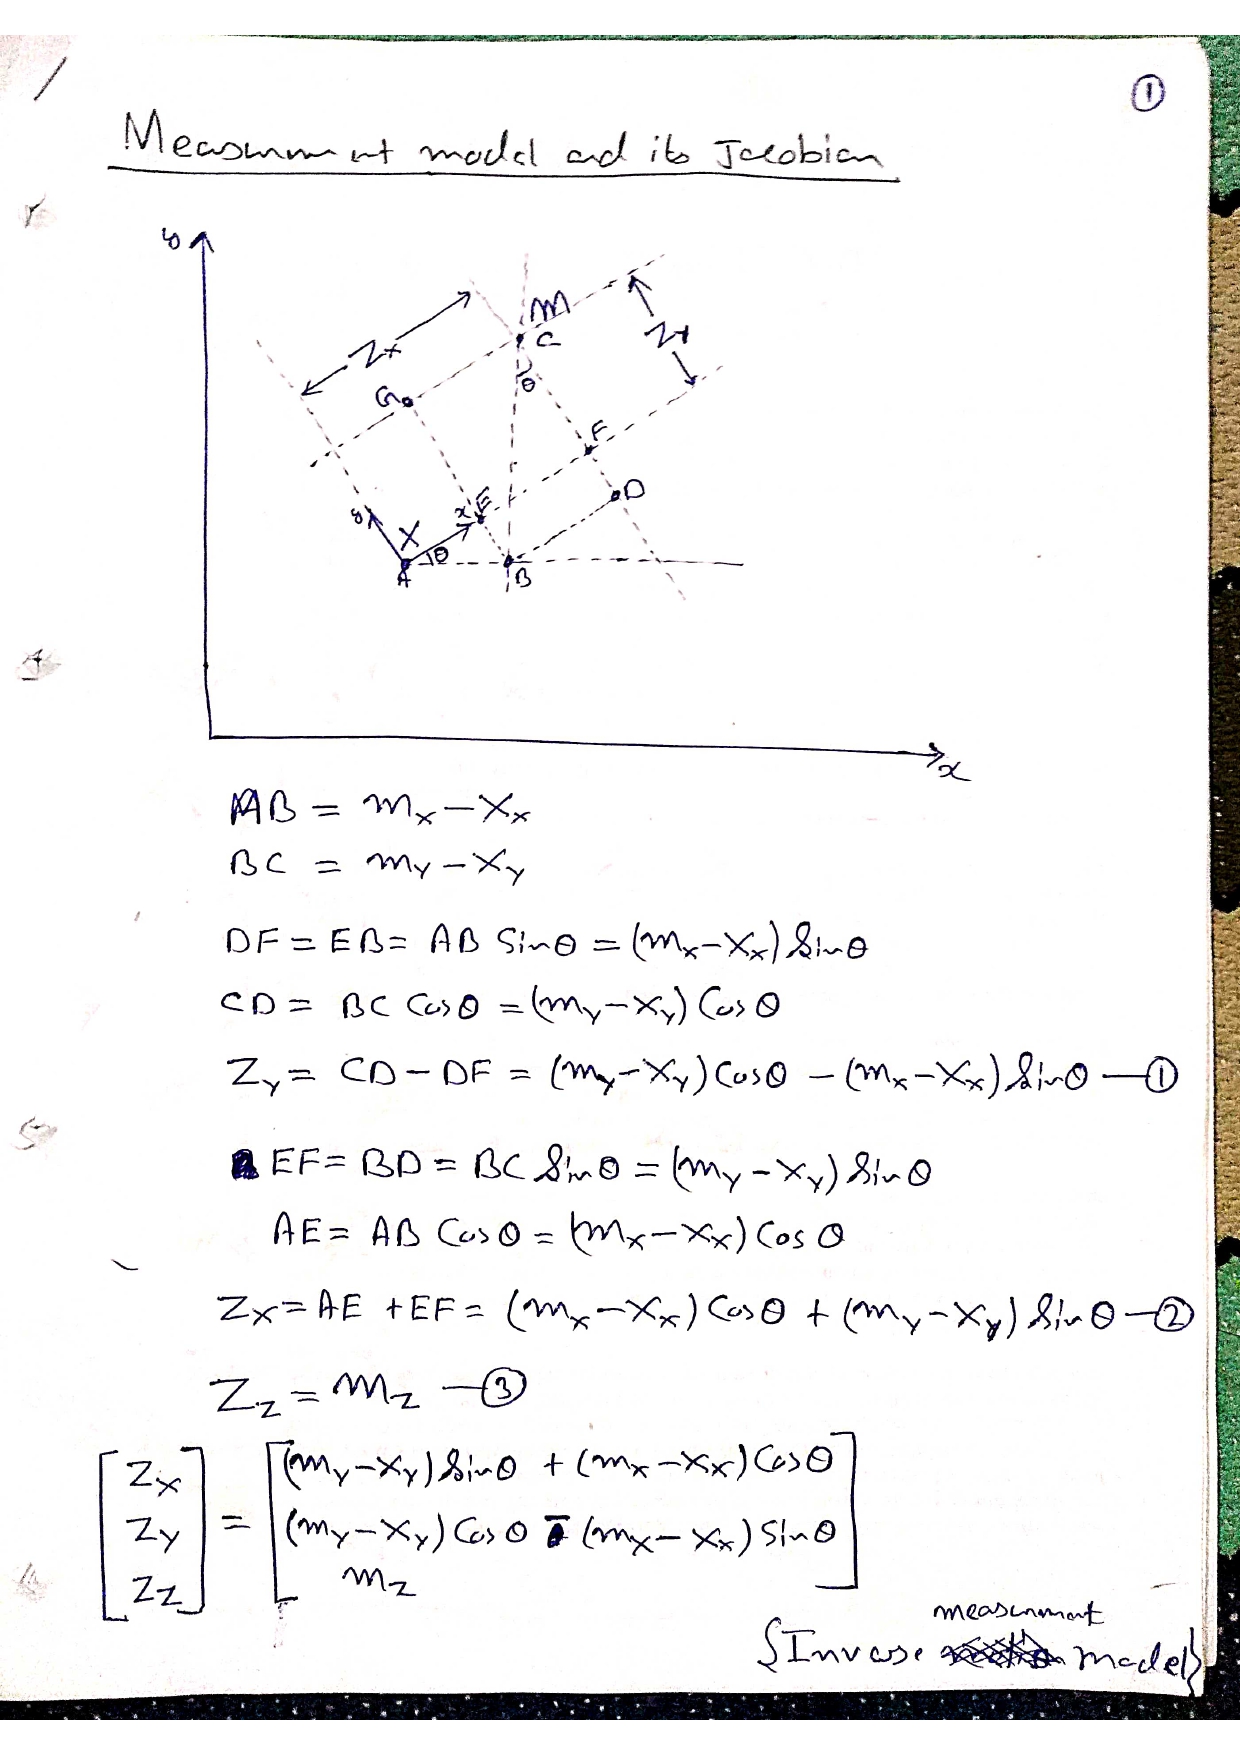 ①
Measurment model and its Jacobian
y
M
C
Zx
Zy
G
θ
F
E
D
y
X
x
θ
A
B
x
AB = mx − Xx
BC = my − Xy
DF = EB = AB Sinθ = (mx − Xx) Sinθ
CD = BC Cosθ = (my − Xy) Cosθ
Zy = CD − DF = (my − Xy) Cosθ − (mx − Xx) Sinθ —①
EF = BD = BC Sinθ = (my − Xy) Sinθ
AE = AB Cosθ = (mx − Xx) Cosθ
Zx = AE + EF = (mx − Xx) Cosθ + (my − Xy) Sinθ —②
Zz = mz —③
[Zx] = [(my − Xy) Sinθ + (mx − Xx) Cosθ]
[Zy] [(my − Xy) Cosθ − (mx − Xx) Sinθ]
[Zz] [mz]
measurment
{Inverse model}